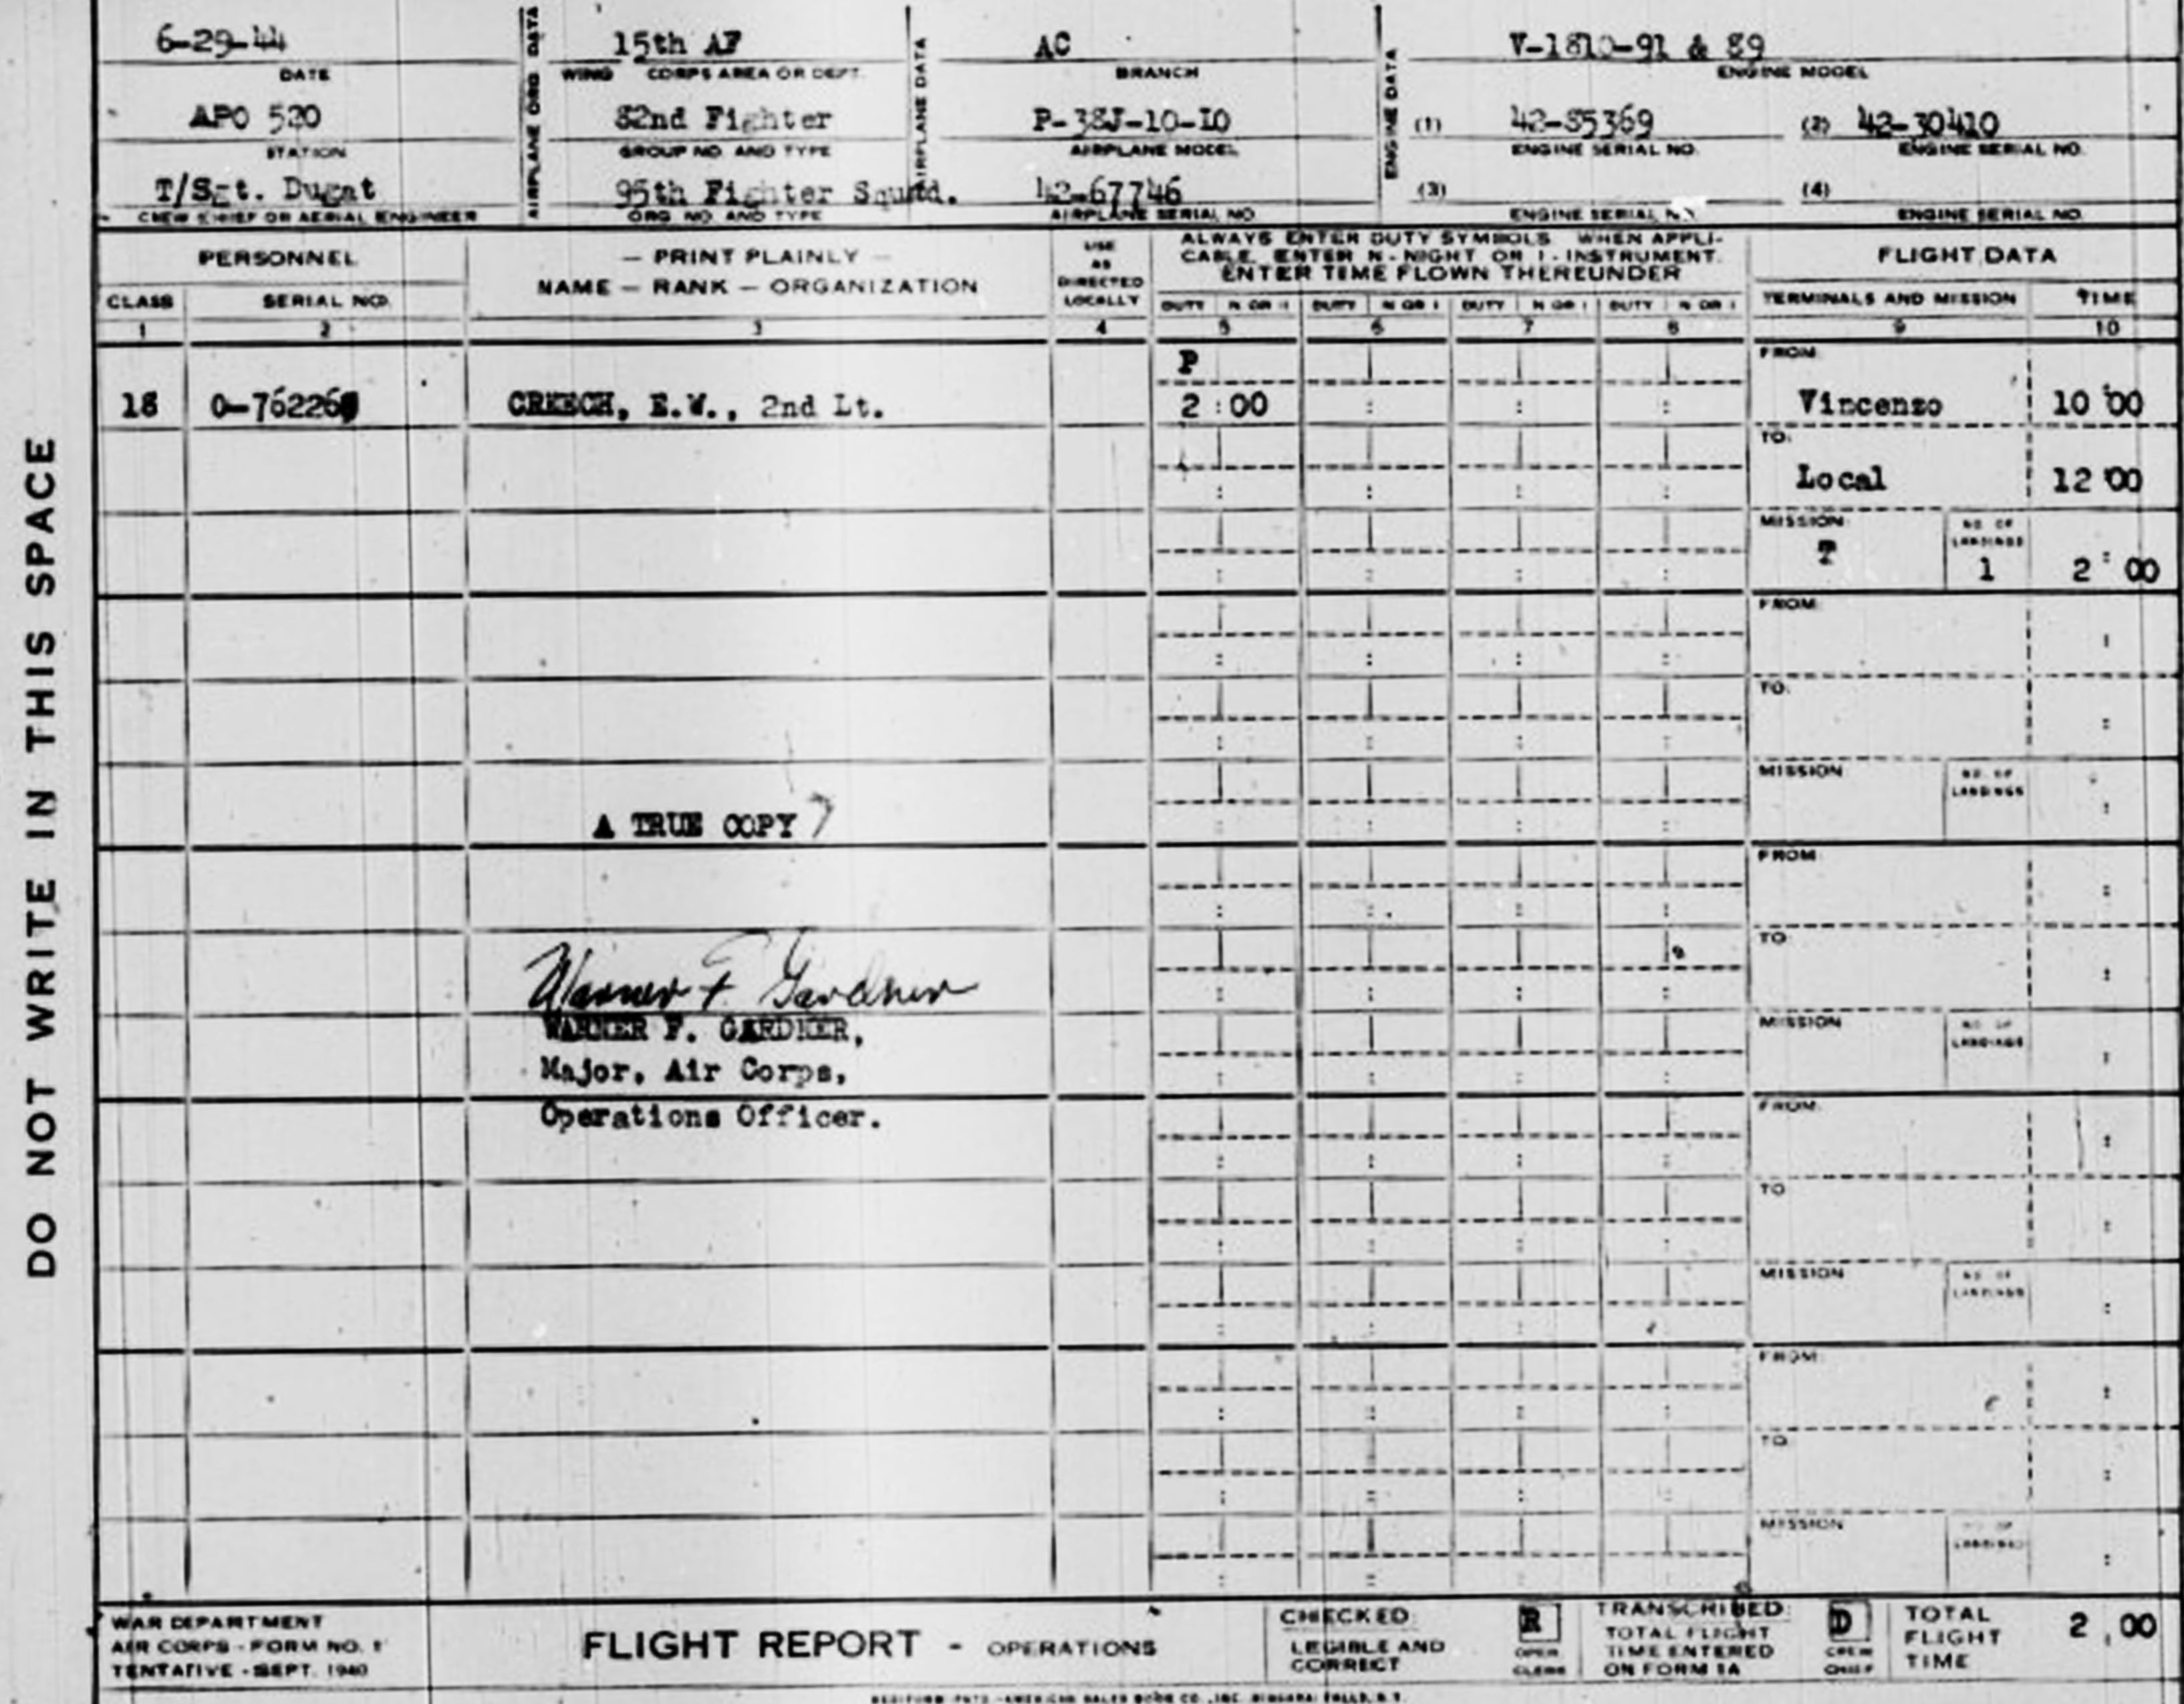 6-29-44
DATE
APO 520
STATION
T/Sgt. Dugat
CREW CHIEF OR AERIAL ENGINEER
AIRPLANE ORG DATA
15th AF
WING CORPS AREA OR DEPT.
82nd Fighter
GROUP NO. AND TYPE
95th Fighter Squad.
ORG NO. AND TYPE
AIRPLANE DATA
AC
BRANCH
P-38J-10-LO
AIRPLANE MODEL
42-67746
AIRPLANE SERIAL NO
ENGINE DATA
V-1810-91 & 89
ENGINE MODEL
(1) 42-85369 (2) 42-30410
ENGINE SERIAL NO. ENGINE SERIAL NO.
(3) (4)
ENGINE SERIAL NO. ENGINE SERIAL NO.
PERSONNEL
CLASS SERIAL NO.
1 2
— PRINT PLAINLY —
NAME — RANK — ORGANIZATION
3
USE
AS
DIRECTED
LOCALLY
4
ALWAYS ENTER DUTY SYMBOLS. WHEN APPLI-
CABLE, ENTER N-NIGHT OR I-INSTRUMENT.
ENTER TIME FLOWN THEREUNDER
DUTY N OR I DUTY N OR I DUTY N OR I DUTY N OR I
5 6 7 8
FLIGHT DATA
TERMINALS AND MISSION TIME
9 10
18 CREECH, E.W., 2nd Lt.
P
2:00
FROM
Vincenzo 10 00
TO:
Local 12 00
MISSION NO. OF
LANDINGS
T 1 2:00
FROM
TO:
MISSION NO. OF
LANDINGS
A TRUE COPY
FROM
TO
MISSION NO. OF
LANDINGS
Warner F. Gardner
WARNER F. GARDNER,
Major, Air Corps,
Operations Officer.
FROM
TO
MISSION NO. OF
LANDINGS
FROM
TO
MISSION NO. OF
LANDINGS
DO NOT WRITE IN THIS SPACE
WAR DEPARTMENT
AIR CORPS - FORM NO. 1
TENTATIVE - SEPT. 1940
FLIGHT REPORT - OPERATIONS
CHECKED:
LEGIBLE AND
CORRECT
R
OPER
CLERK
TRANSCRIBED:
TOTAL FLIGHT
TIME ENTERED
ON FORM 1A
D
CREW
CHIEF
TOTAL
FLIGHT
TIME
2 00